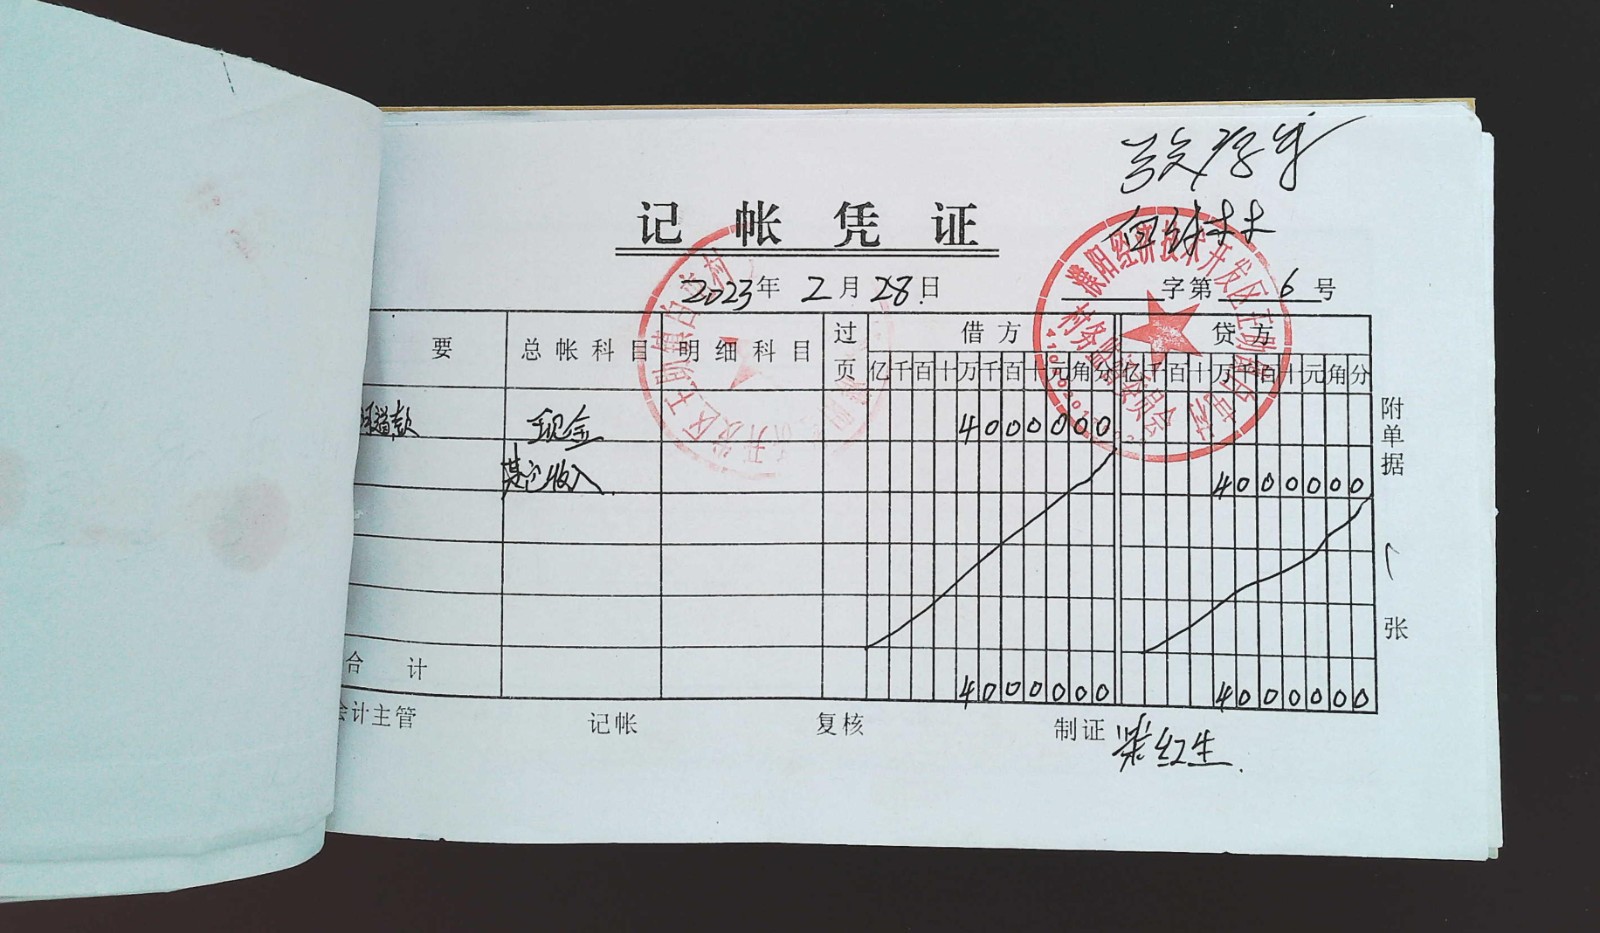 记帐凭证
2023年2月28日
字第6号
要 总帐科目 明细科目 过页 借方 贷方
亿千百十万千百十元角分 亿千百十万千百十元角分
款 现金 4000000
其它收入 4000000
合计 4000000 4000000
附单据 1 张
会计主管 记帐 复核 制证 红生
濮阳经济技术开发区王助镇西白村
村务监督委员会
开发区王助镇西白村